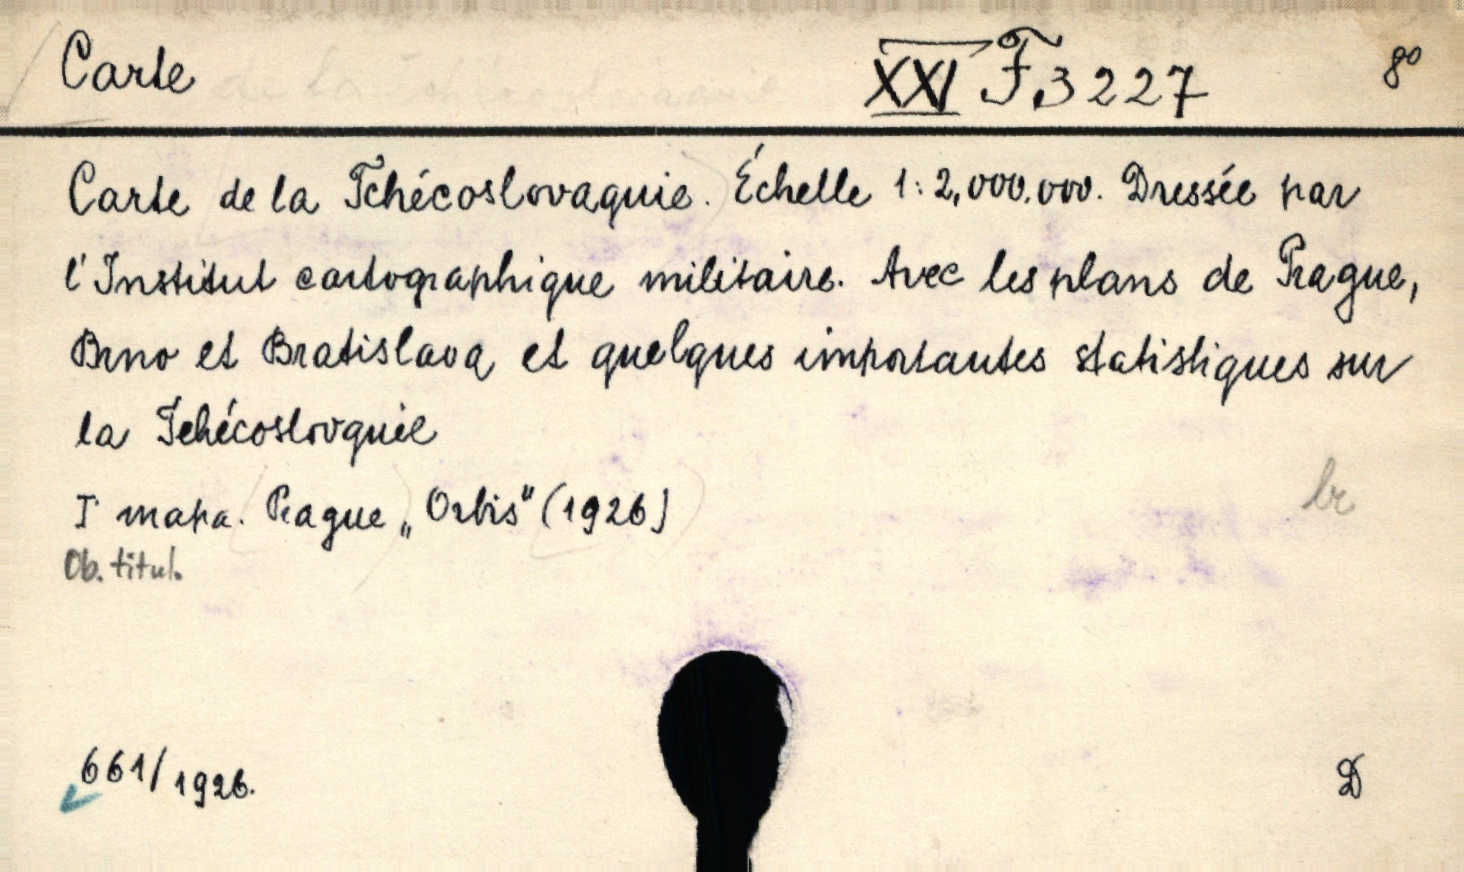 Carte XXI F 3227 8°
Carte de la Tchécoslovaquie. Échelle 1:2,000.000. Dressée par
l'Institut cartographique militaire. Avec les plans de Prague,
Brno et Bratislava et quelques importantes statistiques sur
la Tchécoslovquie
I mapa. Prague „Orbis" (1926)
br
Ob. titul.
661/1926.
D